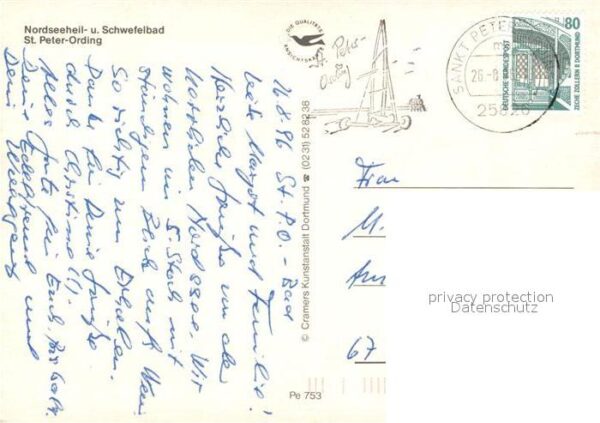 Nordseeheil- u. Schwefelbad
St. Peter-Ording
DIE QUALITÄTS
ANSICHTSKARTE
St. Peter-
Ording
SANKT PETER
26.-8
25826
80
DEUTSCHE BUNDESPOST
ZECHE ZOLLERN II · DORTMUND
St. P.O. - Bad
Liebe Margot und Familie!
Herzliche Grüße von der
herrlichen Nordsee. Wir
wohnen im 5. Stock mit
Blick aufs
So richtig zum Erholen.
Danke für Deine Grüße
durch Christine (!).
Alles Gute für Euch,
Deine und
Dein
© Cramers Kunstanstalt Dortmund ☎ (0231) 52 82 36
Frau
M.
67
privacy protection
Datenschutz
Pe 753